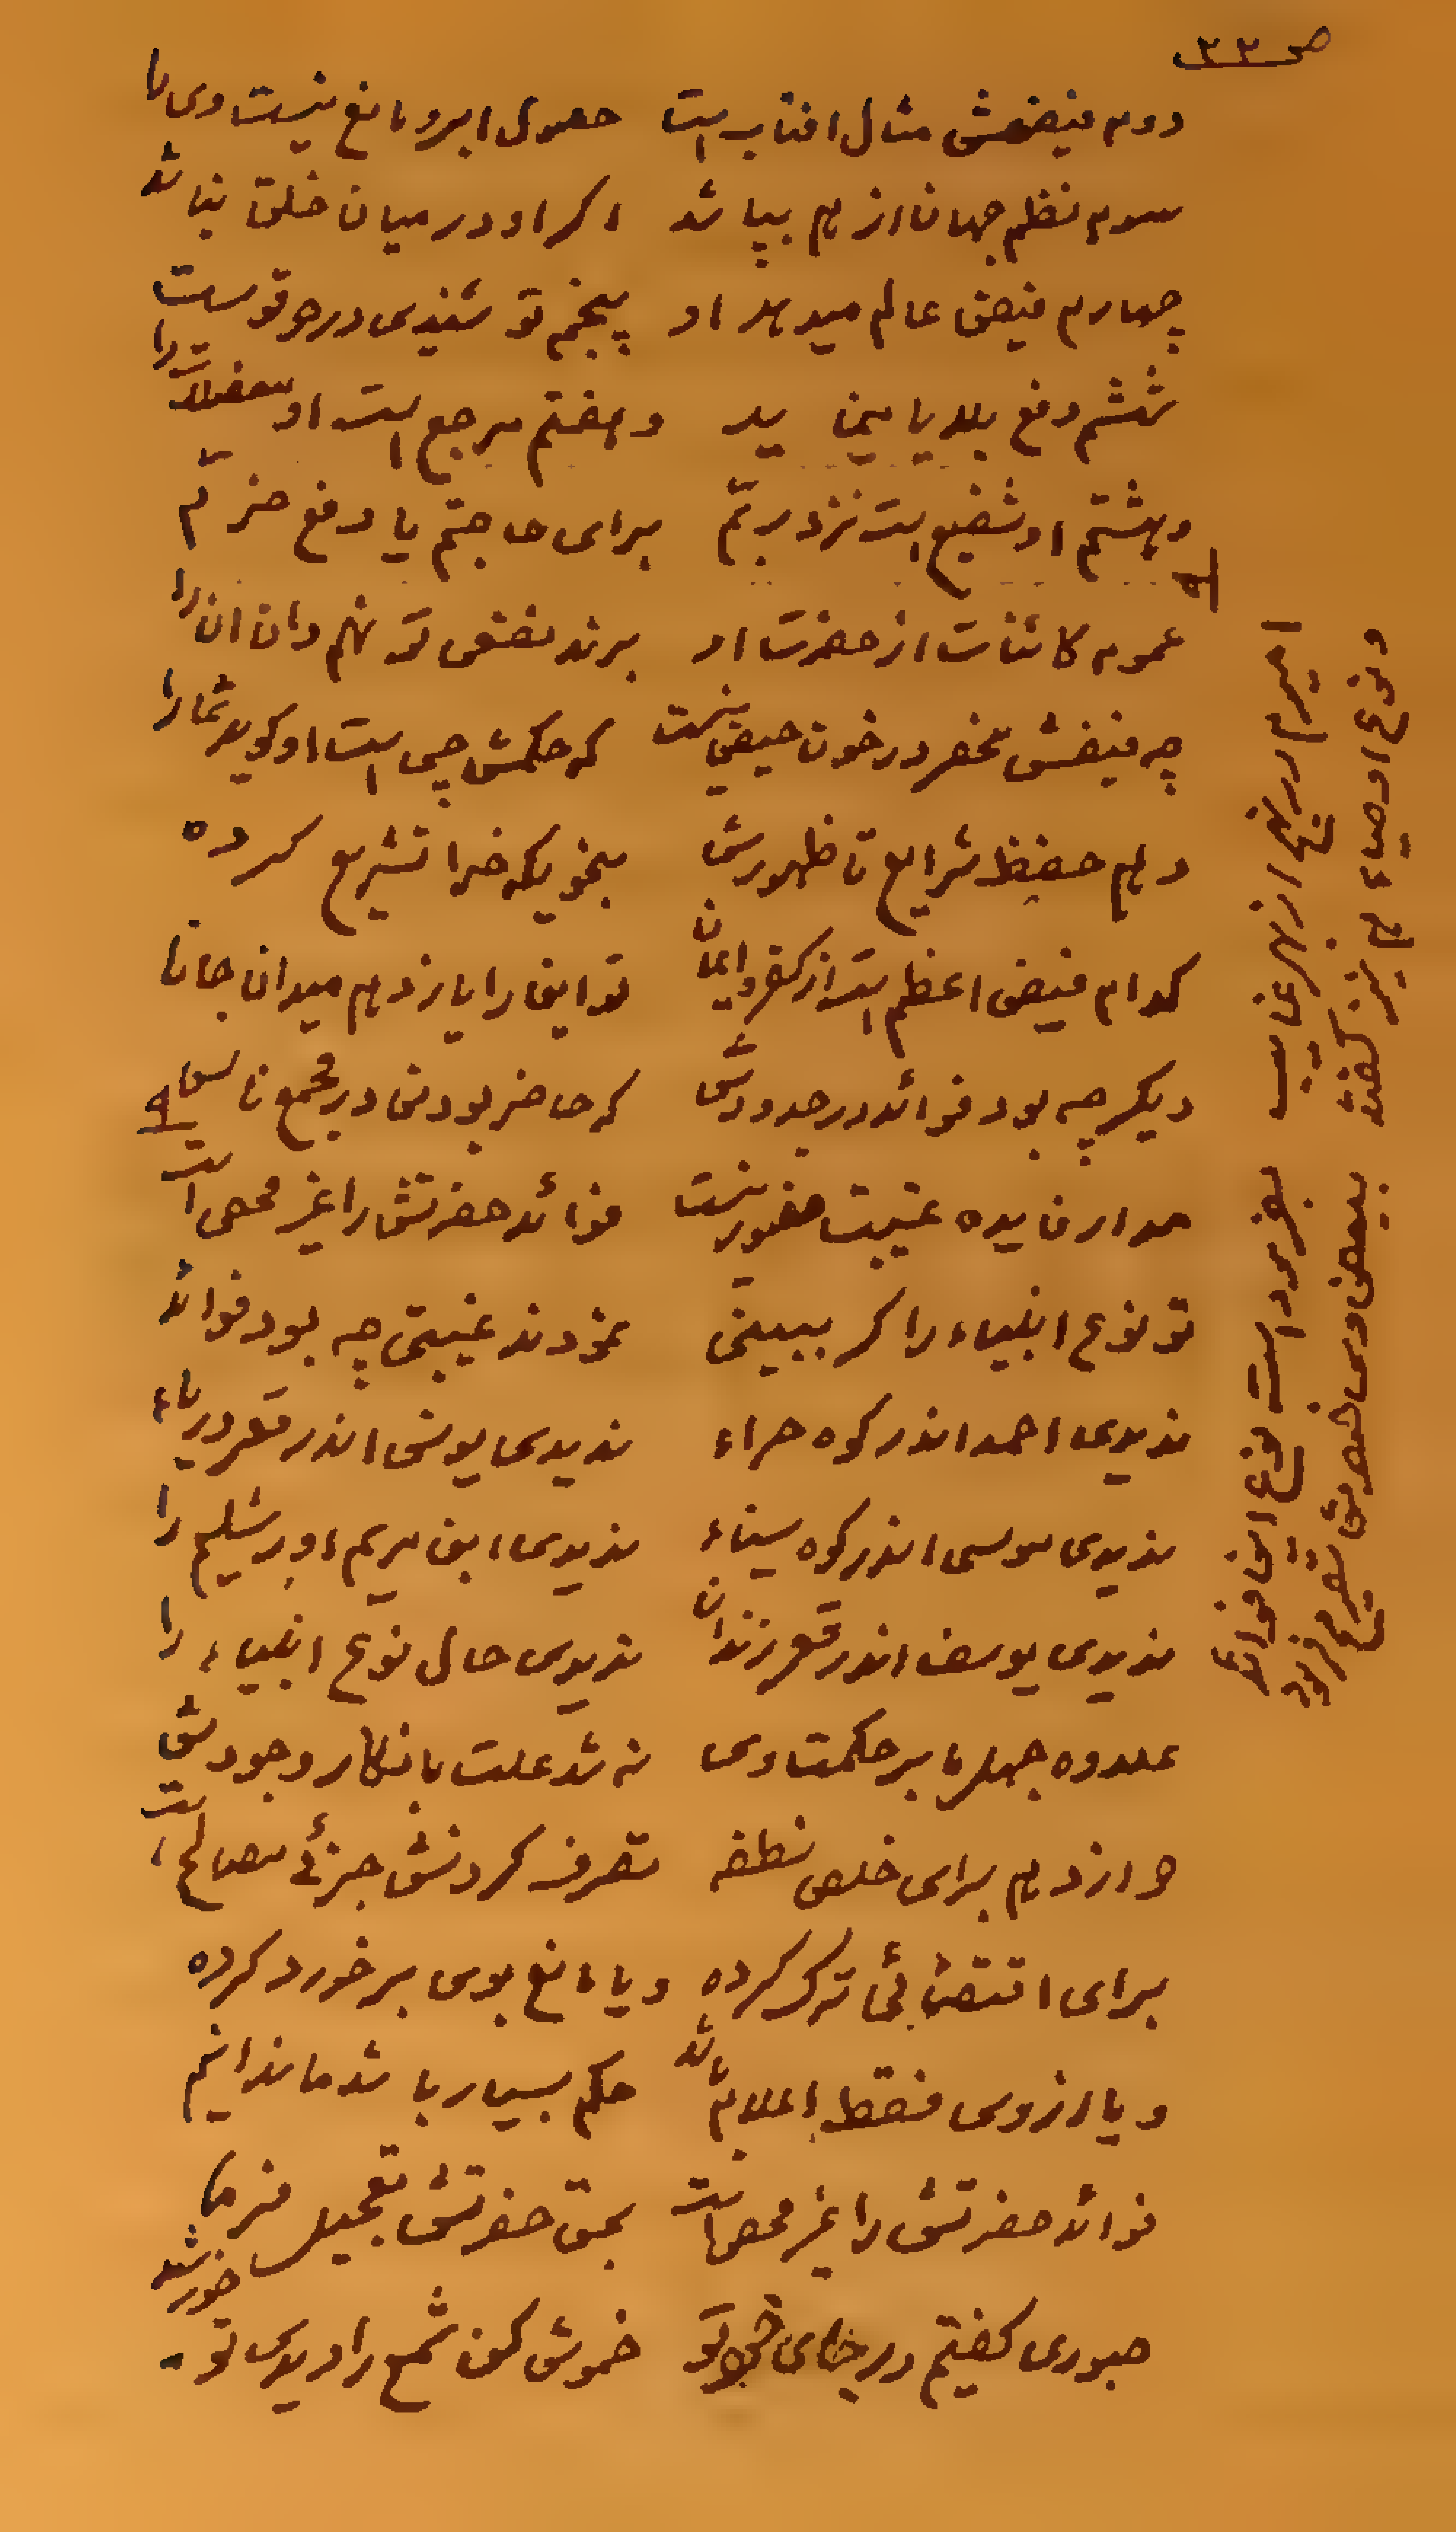 ص ۲۳
دوم فیضش مثال افتاب است حصول ابرو مانع نیست وی را
سوم نظم جهان از هم بپاشد اکر او در میان خلق نباشد
چهارم فیض عالم میدهد او پنجم تو شنیدی در حوقوست
ششم دفع بلایا مینماید و هفتم مرجع است او معضلات را
وهشتم او شفیع است نزد ربّم برای حاجتم یا دفع ضرّم
عموم کائنات از حضرت او برند نفعی که نهم دان ان را
چه فیضش منحصر در خون حیض نیست که حکمش چی است او کوید شما را
دهم حفیظ شرایع تا ظهورش بنحویکه خدا تشریع کرده
کدام فیض اعظم است از کفر و ایمان تو این را یازدهم میدان جانا
دیکر چه بود فوائد در وجودش که حاضر بودن در مجمع ناس
مدار فایده غیبت حضور نیست فوائد حضرتش را غیر محصی است
تو نوع انبیاء را کر ببینی نمودند غیبتی چه بود فوائد
ندیدی احمد اندر کوه حراء ندیدی یونس اندر قعر دریاء
ندیدی موسی اندر کوه سیناء ندیدی ابن مریم اورشلیم را
ندیدی یوسف اندر قعر زندان ندیدی حال نوع انبیاء را
علاوه جهل ما بر حکمت وی نه شد علت بانکار وجودش
دوازدهم برای خلص نطفه تصرف کردنش جزئی مصالح است
برای اقتضائی ترک کرده ویا مانع بوی برخورد کرده
ویا از وی فقط اعلام باشد حکم بسیار باشد ما ندانیم
فوائد حضرتش را غیر محصی است بحق حضرتش تعجیل فرما
صبوری کفتم در جای تو خموش کن شمع را دیدی تو خورشید
امیرم در نهج از بهر غایب بفرمود است نوع این فوائد
ونوع اوصیاء هم نیز کفتند ببعض وی خصوص تصریح فرمود